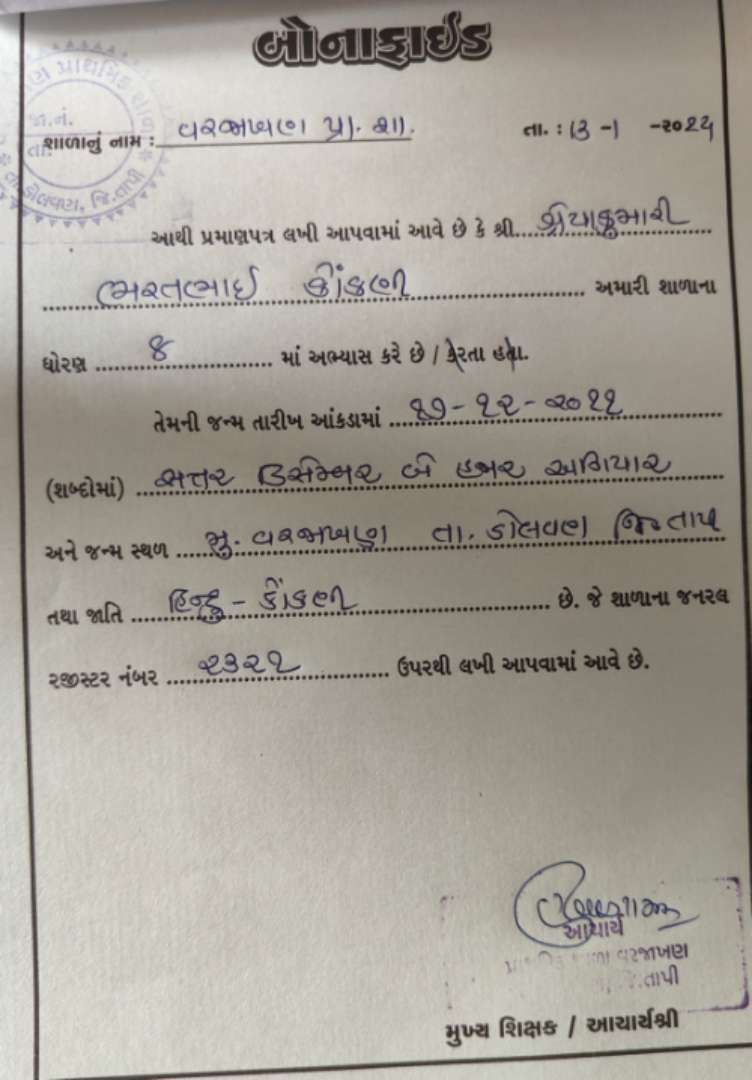 બોનાફાઈડ
પ્રાથમિક
જા.નં.
તા.
તા. ડોલવણ, જિ. તાપી
શાળાનું નામ : વરજાખણ પ્રા. શા. તા. : 13 -1 -૨૦૨૫
આથી પ્રમાણપત્ર લખી આપવામાં આવે છે કે શ્રી શ્રેયાકુમારી
ભરતભાઈ કોંકણી અમારી શાળાના
ધોરણ ૪ માં અભ્યાસ કરે છે / કરતા હતા.
તેમની જન્મ તારીખ આંકડામાં ૧૭-૧૨-૨૦૧૧
(શબ્દોમાં) સત્તર ડિસેમ્બર બે હજાર અગિયાર
અને જન્મ સ્થળ મુ. વરજાખણ તા. ડોલવણ જિ તાપી
તથા જાતિ હિન્દુ - કોંકણી છે. જે શાળાના જનરલ
રજીસ્ટર નંબર ૨૩૨૧ ઉપરથી લખી આપવામાં આવે છે.
આચાર્ય
વરજાખણ
તાપી
મુખ્ય શિક્ષક / આચાર્યશ્રી